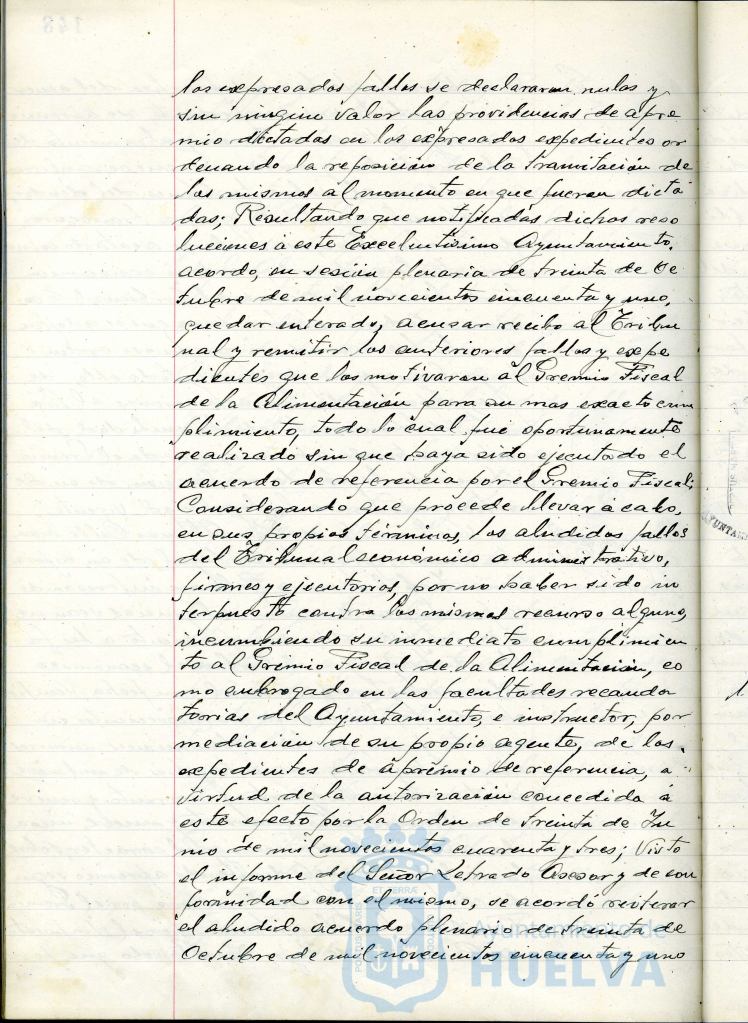 los expresados fallos se declararan nulas y
sin ningun valor las providencias de apre
mio dictadas en los expresados expedientes or
denando la reposición de la tramitación de
los mismos al momento en que fueron dicta
das; Resultando que notificadas dichas reso
luciones a este Excelentísimo Ayuntamiento,
acordo, en sesión plenaria de treinta de Oc
tubre de mil novecientos cincuenta y uno,
quedar enterado, acusar recibo al Tribu
nal y remitir los anteriores fallos y expe
dientes que los motivaron al Gremio Fiscal
de la Alimentación para su mas exacto cum
plimiento, todo lo cual fué oportunamente
realizado sin que haya sido ejecutado el
acuerdo de referencia por el Gremio Fiscal;
Considerando que procede llevar á cabo,
en sus propios términos, los aludidos fallos
del Tribunal económico administrativo,
firmes y ejecutorios, por no haber sido in
terpuesto contra los mismos recurso alguno,
incumbiendo su inmediato cumplimien
to al Gremio Fiscal de la Alimentación, co
mo subrogado en las facultades recauda
torias del Ayuntamiento, e instructor, por
mediación de su propio agente, de los
expedientes de apremio de referencia, a
virtud de la autorización concedida á
este efecto por la Orden de treinta de Ju
nio de mil novecientos cuarenta y tres; Visto
el informe del Señor Letrado Asesor y de con
formidad con el mismo, se acordó reiterar
el aludido acuerdo plenario de treinta de
Octubre de mil novecientos cincuenta y uno
Ayuntamiento de
HUELVA